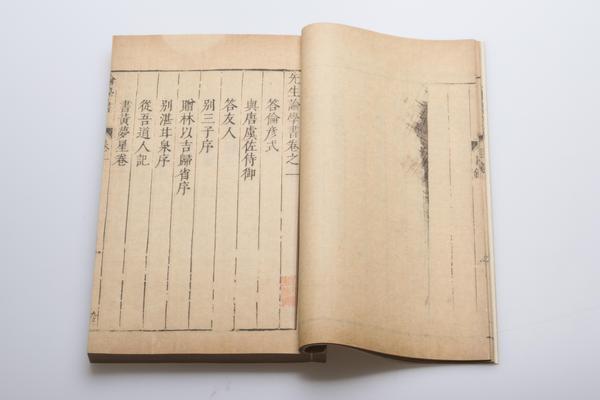 先生論學書卷之一
答倫彥式
與唐虞佐侍御
答友人
別三子序
贈林以吉歸省序
別湛甘泉序
從吾道人記
書黃夢星卷